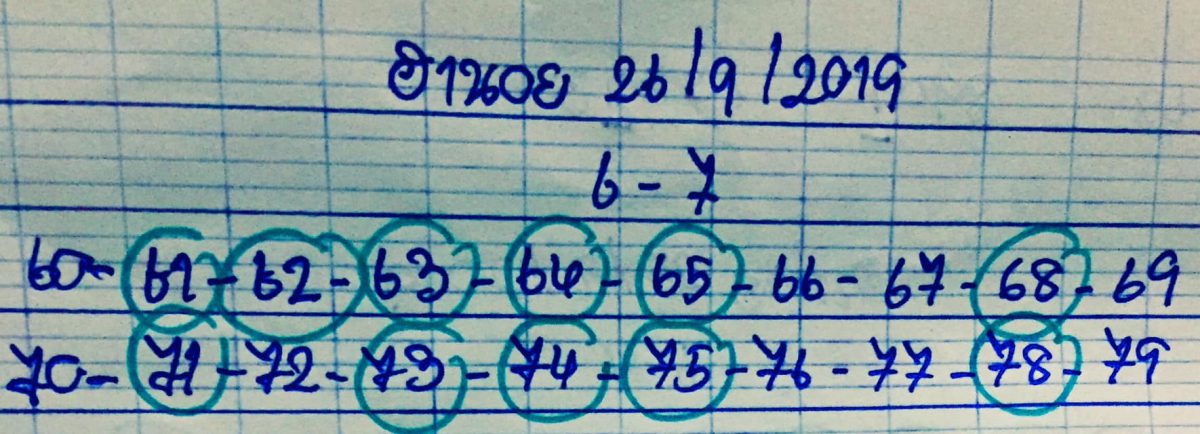 ฮานอย 26/9/2019
6-7
60-61-62-63-64-65-66-67-68-69
70-71-72-73-74-75-76-77-78-79